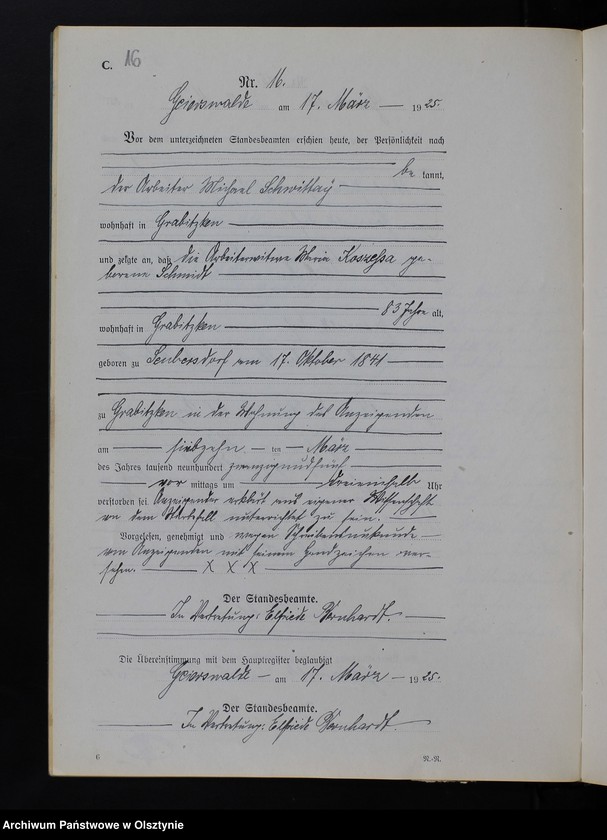 C. 16
Nr. 16.
Geierswalde am 17. März 1925.
Vor dem unterzeichneten Standesbeamten erschien heute, der Persönlichkeit nach
be kannt,
der Arbeiter Michael Schwittay
wohnhaft in Grabitzken
und zeigte an, daß die Arbeiterwitwe Maria Koszessa ge-
borene Schmidt
83 Jahre alt,
wohnhaft in Grabitzken
geboren zu Seubersdorf am 17. Oktober 1841
zu Grabitzken in der Wohnung des Anzeigenden
am siebzehn ten März
des Jahres tausend neunhundert zwanzigundfünf
vor mittags um dreieinhalb Uhr
verstorben sei. Anzeigender erklärt aus eigener Wissenschaft
von dem Sterbefall unterrichtet zu sein.
Vorgelesen, genehmigt und wegen Schreibensunkunde
vom Anzeigenden mit seinem Handzeichen ver-
sehen. X X X
Der Standesbeamte.
In Vertretung: Elfriede Bernhardt.
Die Übereinstimmung mit dem Hauptregister beglaubigt
Geierswalde am 17. März 1925.
Der Standesbeamte.
In Vertretung: Elfriede Bernhardt.
6 N.-R.
Archiwum Państwowe w Olsztynie